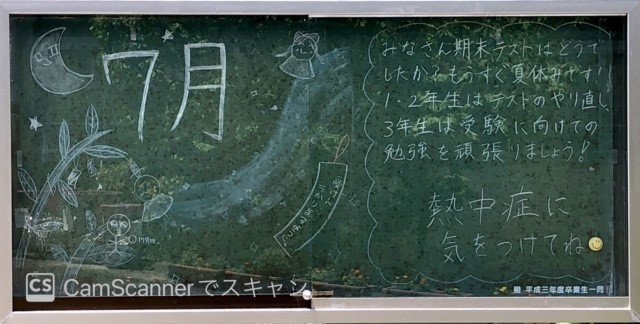 7月
みなさん期末テストはどうで
したか？もうすぐ夏休みです！
1・2年生はテストのやり直し
3年生は受験に向けての
勉強を頑張りましょう！
熱中症に
気をつけてね
贈 平成三年度卒業生一同
CS CamScannerでスキャン